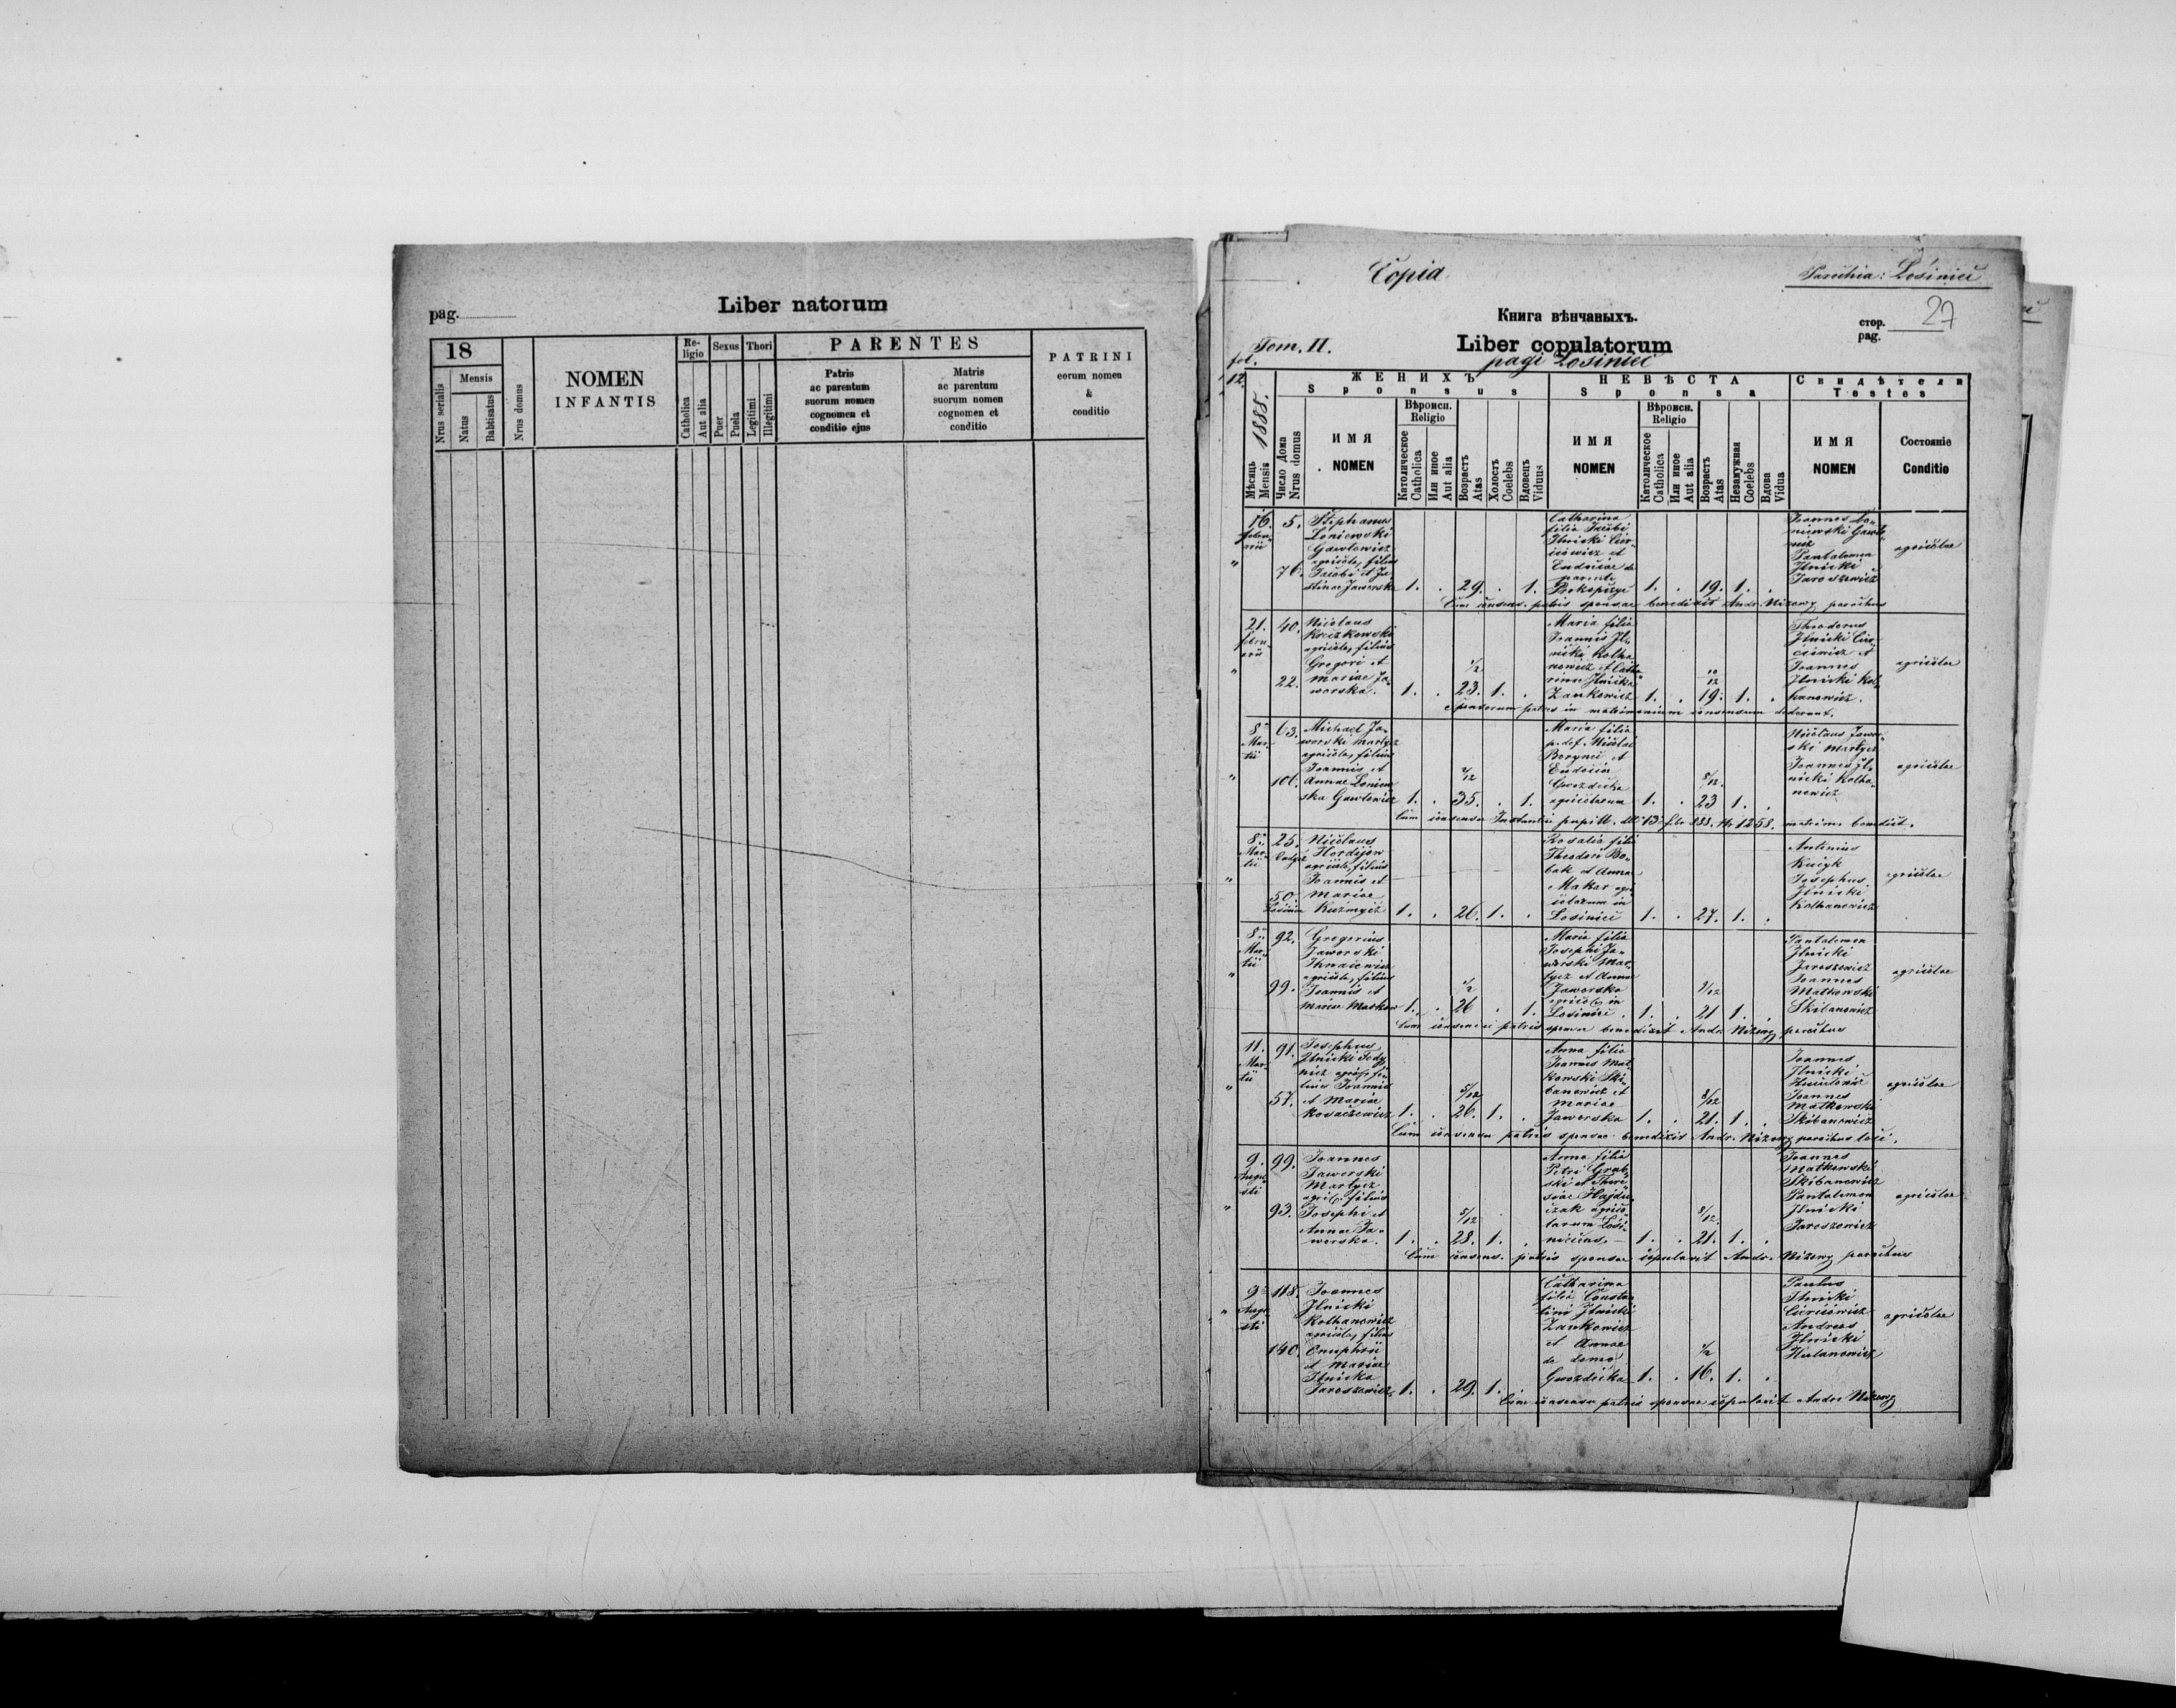 pag.
Liber natorum
18
Nrus serialis
Mensis
Natus
Babtisatus
Nrus domus
NOMEN
INFANTIS
Re-
ligio
Catholica
Aut alia
Sexus
Puer
Puela
Thori
Legitimi
Illegitimi
PARENTES
Patris
ac parentum
suorum nomen
cognomen et
conditio ejus
Matris
ac parentum
suorum nomen
cognomen et
conditio
PATRINI
eorum nomen
&
conditio
Copia
Parochia: Łosiniec
Книга вѣнчавыхъ.
стор.
pag.
27
Tom. II.
fol.
12
Liber copulatorum
pagi Łosiniec
1885.
Мѣсяць
Mensis
Число Дома
Nrus domus
ЖЕНИХЪ
Sponsus
ИМЯ
NOMEN
Вѣроисп.
Religio
Католическое
Catholica
Или иное
Aut alia
Возрастъ
Atas
Холостъ
Coelebs
Вдовецъ
Viduus
НЕВѢСТА
Sponsa
ИМЯ
NOMEN
Вѣроисп.
Religio
Католическое
Catholica
Или иное
Aut alia
Возрастъ
Atas
Незамужная
Coelebs
Вдова
Vidua
Свидѣтели
Testes
ИМЯ
NOMEN
Состояніе
Conditio
16.
febru
arii
5.
76.
Stephanus
Loniewski
Gawlewicz
agricola, filius
Jacobi et Ju
stinae Jaworsk
1. . 29. . 1.
Catharina
filia Jacobi
Ilnicki
et
Eudociae de
parente
1. . 19. 1. .
Joannes Lo
niewski Gawle
wicz
Pantalemon
Ilnicki
Jaroszewicz
agricolae
Cum consens. patris sponsae benedixit Andr. Niżowy parochus
21.
febru
arii
40.
22.
Nicolaus
Kruszkowski
agricola, filius
Gregori et
Mariae Ja
worska.
1. . 23. 1. .
1/2
Maria filia
Joannis Il
nicki Kolha
nowicz et Catha
rina Ilnicka
Zankowicz
1. . 19. 1. .
10
12
Theodorus
Ilnicki
et
Joannes
Ilnicki Kol
hanowicz.
agricolae
Sponsorum patres in matrimonium consensum dederunt.
8
Mar
tii
63.
106.
Michael Ja
worski Martycz
agricola, filius
Joannis et
Annae Loniew
ska Gawlewicz
1. . 35. . 1.
2/12
Maria filia
p. def. Nicolai
Borynec et
Eudocia
Gwozdecka
agricolarum
1. . 23 1. .
8/12
Nicolaus Jawor
ski Martycz
Joannes Il
nicki Kolha
nowicz
agricolae
Cum consensu Instantiae pupill. 1258. matrim. benedict.
8
Mar
tii
25.
50.
Nicolaus
Hordijow
agricola, filius
Joannis et
Mariae
Kuźmycz
1. . 26. 1. .
Rosalia filia
Theodori Bo
bak et Annae
Makar agri
colarum in
Łosiniec
1. . 27. 1. .
Antonius
Kuicyk
Josephus
Ilnicki
Kolhanowicz
agricolae
8
Mar
tii
92.
99.
Gregorius
Jaworski
agricola, filius
Joannis et
Mariae Markow
1. . 26 . 1.
1/2
Maria filia
Josephi Ja
worski Mar
tycz et Anna
Jaworska
agricol. in
Łosiniec.
1. . 21 1. .
9/12
Pantalemon
Ilnicki
Jaroszewicz
Joannes
Matkowski
Skibanowicz
agricolae
Cum consensu patris sponsae benedixit Andr. Niżowy, parochus
11.
Mar
tii
91.
57.
Josephus
Ilnicki Fedy
nicz agric. fi
lius Joannis
et Mariae
Kowaczewicz
1. . 26. 1. .
5/12
Anna filia
Joannis Mat
kowski Ski
banowicz et
Mariae
Jaworska
1. . 21. 1. .
8/12
Joannes
Ilnicki
Joannes
Matkowski
Skibanowicz
agricolae
Cum consensu patris sponsae benedixit Andr. Niżowy parochus loci.
9.
Augu
sti
99.
93.
Joannes
Jaworski
Martycz
agric. filius
Josephi et
Annae Ja
worska.
1. . 28. 1. .
5/12
Anna filia
Petri Grab
ski et There
siae Hajdu
czak agrico
larum Łosi
niecens.
1. . 21. 1. .
8/12
Joannes
Matkowski
Skibanowicz
Pantalemon
Ilnicki
Jaroszewicz
agricolae
Cum consens. patris sponsae copulavit Andr. Niżowy parochus
9
Augu
sti
118.
140.
Joannes
Ilnicki
Kolhanowicz
agricola, filius
Onuphrii
et Mariae
Ilnicka
Jaroszewicz,
1. . 29. 1. .
Catharina
filia Consta
tini Ilnicki
Zankowicz
et Annae
de domo
Gwozdecka
1. . 16. 1. .
1/2
Paulus
Ilnicki
Andreas
Ilnicki
agricolae
Cum consensu patris sponsae copulavit Andr. Niżowy